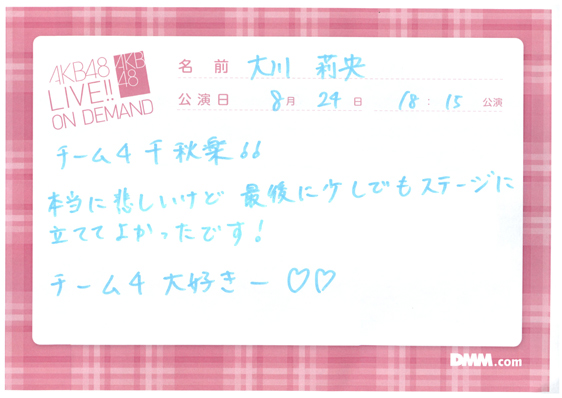 AKB48
LIVE!!
ON DEMAND
AKB
48
名 前 大川 莉央
公演日 8月 24日 18:15 公演
チーム4 千秋楽
本当に悲しいけど 最後に少しでもステージに
立ててよかったです!
チーム4 大好きー♡♡
DMM.com